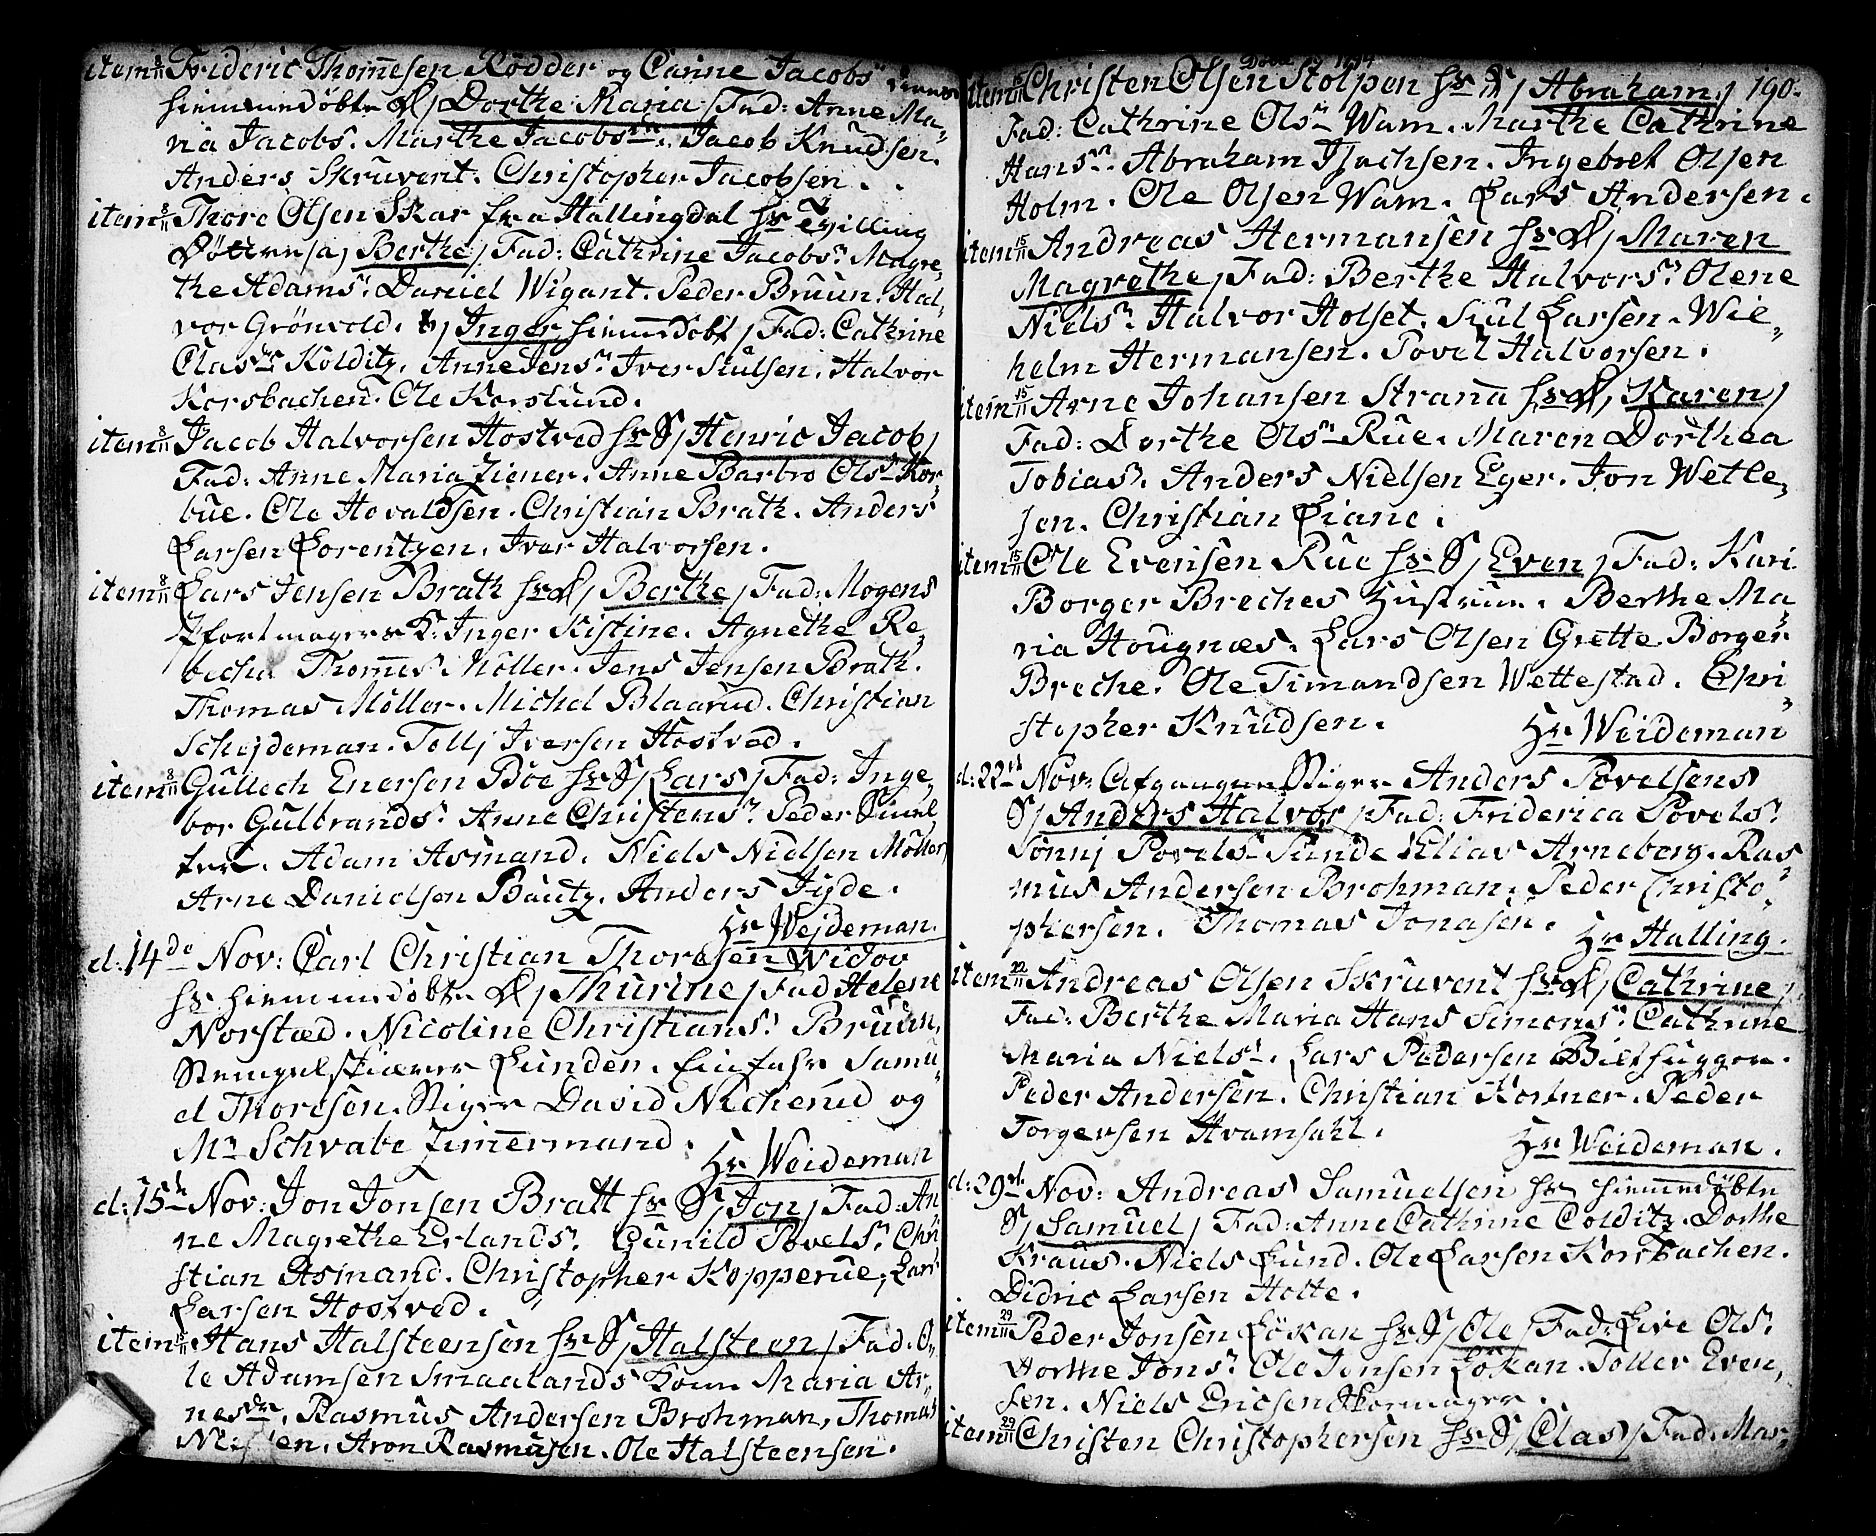 item 8/11 Frideric Thom̅esen Rödder og Can̅ne Jacobsdr
hiemmedøbte D/ Dorthe Maria / Fad: Anne Ma-
ria Jacobs. Marthe Jacobsdr. Jacob Knudsen.
Anders Skruvent. Christopher Jacobsen.
item 8/11 Thore Olsen Skar fra Hallingdal hs Tvilling
Döttre /a/ Berthe / Fad: Cathrine Jacobsdr Magre-
the Adamsdr. Daniel Wigant. Peder Bruun. Hal-
vor Grönvold. b/ Inger hiemmedöbt / Fad: Cathrine
Clasdr Kolditz. Anne Jensdr Iver Siulsen. Halvor
Korsbachen. Ole Korslund.
item 8/11 Jacob Halvorsen Hostved hs S/ Henric Jacob /
Fad: Anne Maria Ziener. Anne Barbro Olsdr Kor-
bue. Ole Hovaldsen. Christian Brath. Anders
Larsen Lorentzen. Iver Halvorsen.
item 8/11 Lars Jensen Brath hs D/ Berthe / Fad: Mogens
K: Inger Kistine. Agnethe Re-
becha Thom̅es Möller. Jens Jensen Brath.
Thomas Möller. Michel Blaarud. Christian
Schejdeman. Tollj Iversen Hostved.
item 8/11 Gullech Enersen Böe hs S/ Lars / Fad: Inge-
bor Gulbrandsdr. Anne Christensdr. Peder
Adam Asmand. Niels Nielsen Möller
Arne Danielsen Bautz. Anders Jyde.
Hr Wejdeman.
d: 14de Nov: Carl Christian Thoresen Widov
hs hiemmedøbte D/ Thurine / Fad Helene
Norstæd. Nicoline Christiansdr Bruun,
Stempelskiærer Lunden. Einfahr Samu-
el Thoresen. Stiger David Nicherud og
Mr Schvabe Zimmermand.
Hr Weideman
d: 15de Nov: Jon Jonsen Bratt hs S/ Jon / Fad: An
ne Magrethe Erlandsdr. Gunild Povelsdr. Chri
stian Asmand. Christopher Kopperue, Lars
Larsen Hostved.
item 15/11 Hans Halsteensen hs S/ Halsteen / Fad: O-
le Adamsen Smaalands Kone Maria Ar-
nesdr. Rasmus Andersen Brohman, Thomas
Nielsen. Aron Rasmusen. Ole Halsteensen.
item 15/11 Christen Olsen Stolpen hs D/ Abraham / 190.
Fad: Cathrine Olsdr Wam. Marthe Cathrine
Hansdr. Abraham Isachsen. Ingebret Olsen
Holm. Ole Olsen Wam. Lars Andersen.
item 15/11 Andreas Hermansen hs D/ Maren
Magrethe / Fad: Berthe Halvorsdr Olene
Nielsdr. Halvor Holset. Siul Larsen. Wil-
helm Hermansen. Povel Halvorsen.
item 15/11 Arne Johansen Strand hs D/ Karen /
Fad: Dorthe Olsdr Rue. Maren Dorthea
Tobiasdr. Anders Nielsen Eger. Jon Wetle-
sen. Christian Liane.
item 15/11 Ole Evensen Rue hs S/ Even / Fad: Kari
Borger Breches Hustrue. Berthe Ma
ria Hougnæs. Lars Olsen Grette Borger
Breche. Ole Timandsen Wettestad. Chri-
stopher Knudsen.
Hr Weideman
d: 22de Nov: Afgangne Stiger Anders Povelsens
S/ Anders Halvor / Fad: Friderica Povelsdr
Sönnj Povelsdr Sunde Elias Arneberg. Ras
mus Andersen Brohman, Peder Christo-
phersen. Thomas Jonasen.
Hr Halling.
item 22/11 Andreas Olsen Skruvent hs D/ Cathrine /
Fad: Berthe Maria Hans Simonsdr. Cathrine
Maria Nielsdr. Lars Pedersen Bilthugger.
Peder Andersen. Christian Kortner. Peder
Torgersen Hvamsahl.
Hr Weideman.
d: 29de Nov: Andreas Samuelsen hs hiemmedøbte
S/ Samuel / Fad: Anne Cathrine Colditz. Dorthe
Kraus. Niels Lund. Ole Larsen Korsbachen.
Didric Larsen Holte.
item 29/11 Peder Jonsen Lökan hs S/ Ole / Fad: Live Olsdr.
Dorthe Jonsdr. Ole Jonsen Lökan. Tollev Even-
sen. Niels Ericsen
item 29/11 Christen Christophersen hs S/ Clas / Fad: Mar-